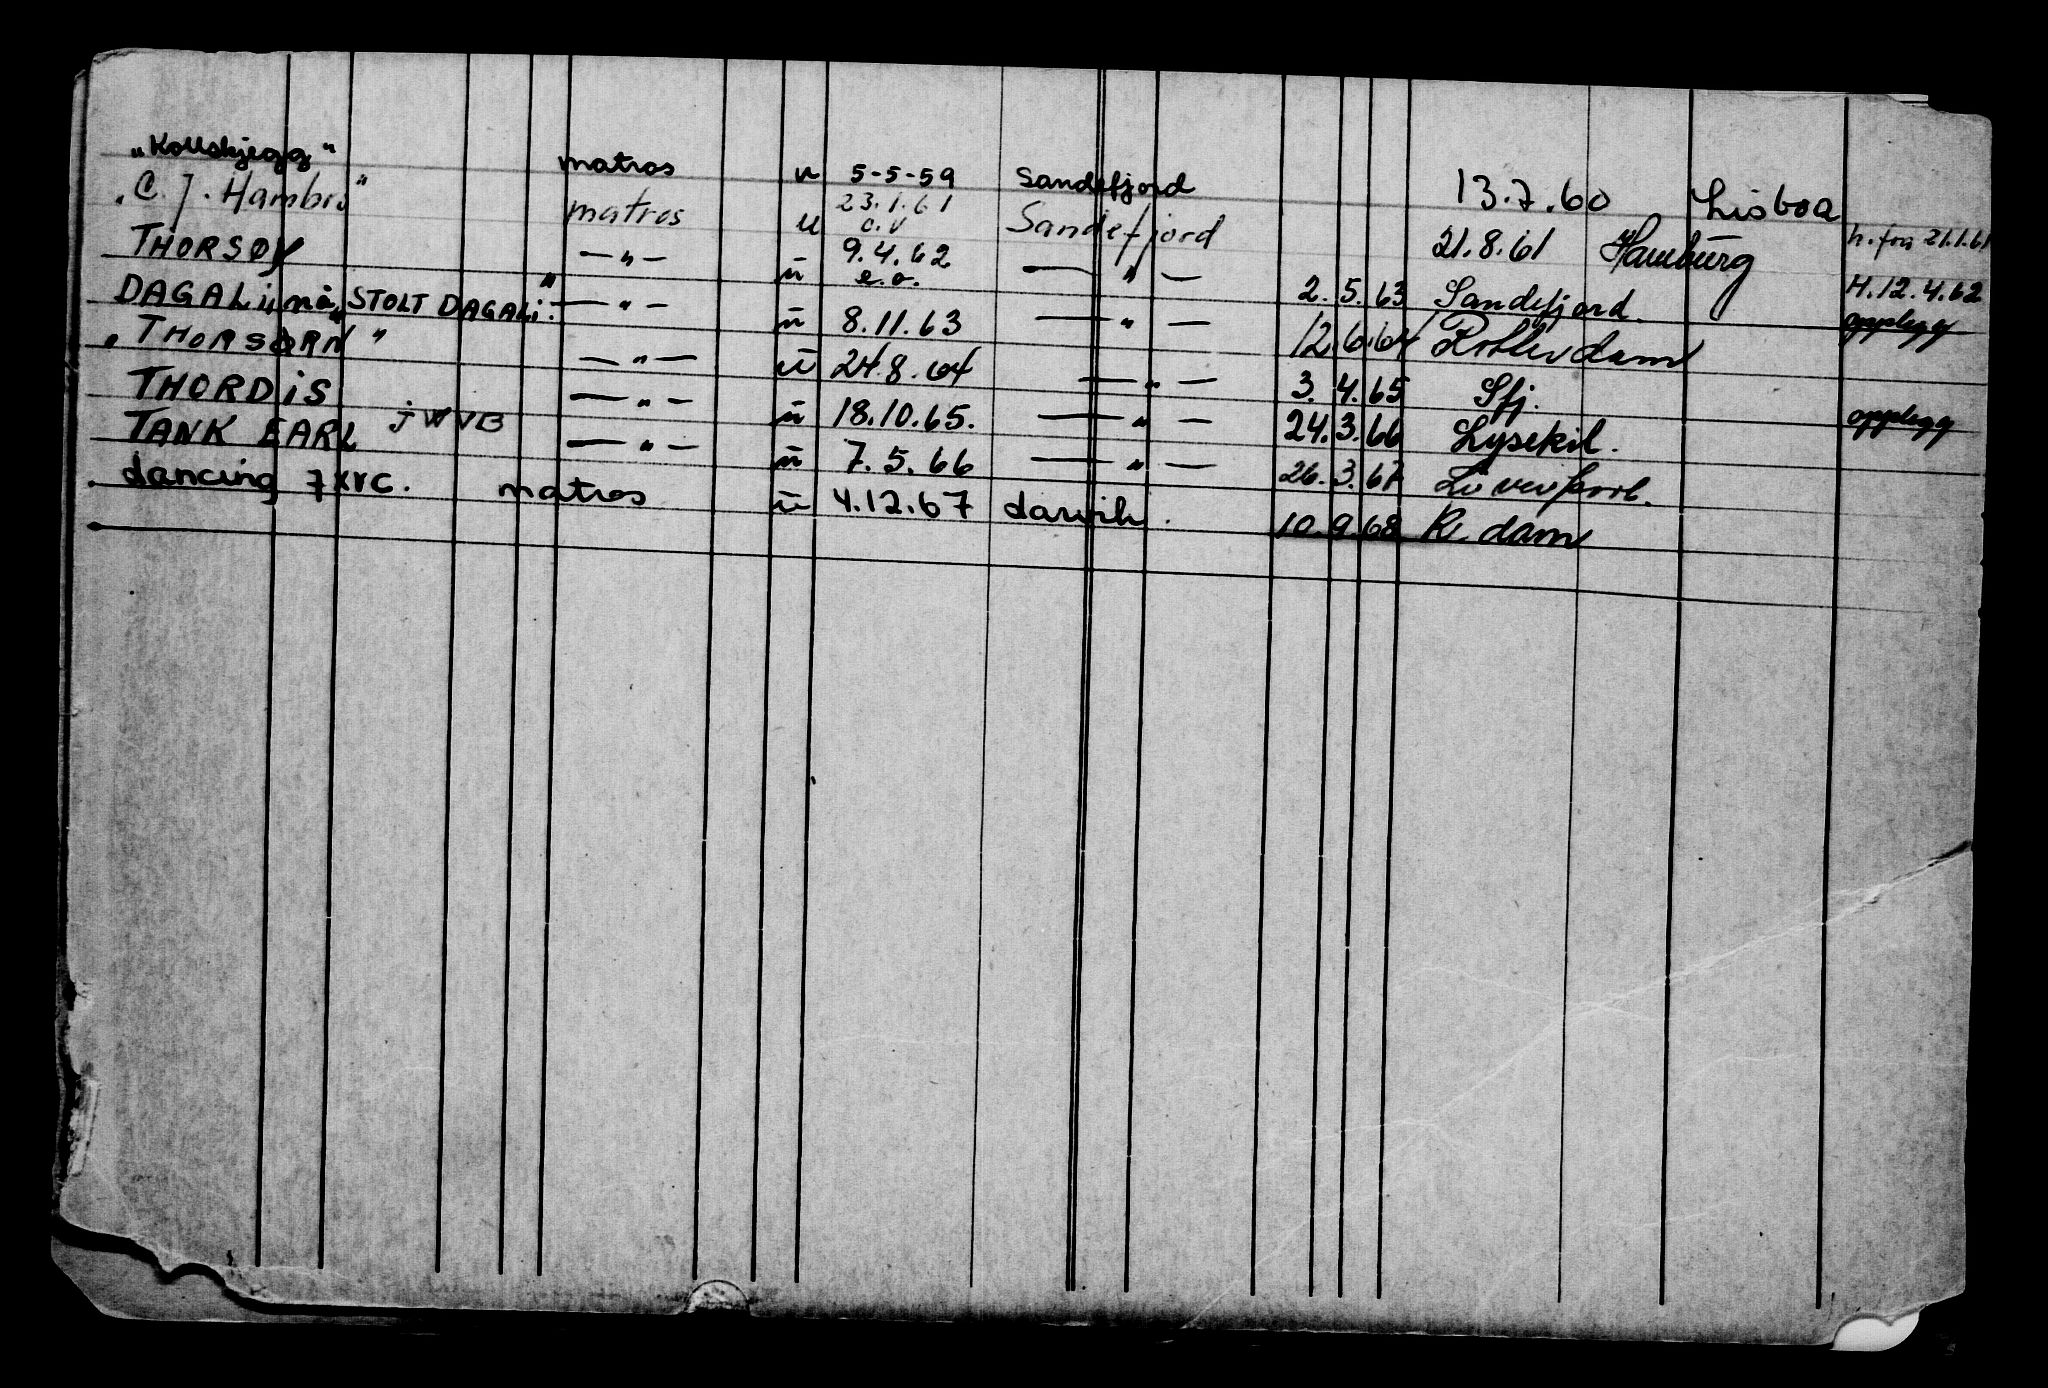 "Kollbjegg" matros u 5-5-59 Sandefjord 13.7.60 Lisboa
"C. J. Hambro" matros u 23.1.61 o.v Sandefjord 21.8.61 Hamburg h. fra 21.1.61
THORSØY —"— ū 9.4.62 e.o. —"— 2.5.63 Sandefjord. H.12.4.62 opplegg
DAGALI, nå "STOLT DAGALI" —"— ū 8.11.63 —"— 12.6.64 Rotterdam
"THORSØRN" —"— ū 24.8.64 —"— 3.4.65 Sfj. opplegg
THORDIS —"— ū 18.10.65. —"— 24.3.66 Lysekil.
TANK EARL JWVB —"— ū 7.5.66 —"— 26.3.67 Liverpool.
dancing 7XVC. matros ū 4.12.67 10.9.68 R. dam